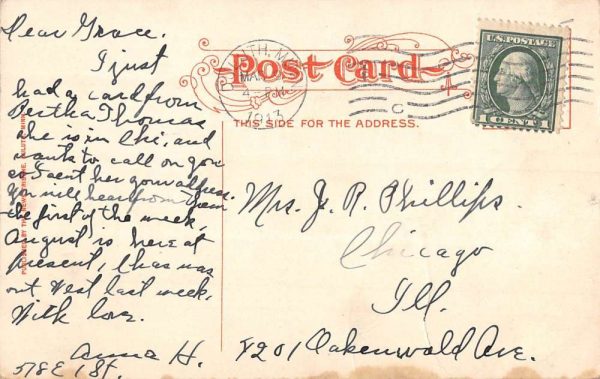 Dear Grace.
I just
had a card from
Bertha Thomas
she is in Chi, and
wants to call on you
so I sent her your address.
you will hear from
the first of the week,
August is here at
present, Chas was
out West last week.
With love.
Anna H.
578 E 1 St.
Post Card
THIS SIDE FOR THE ADDRESS.
1913
U.S. POSTAGE
1 CENT 1
Mrs. J. R. Phillips.
Chicago
Ill.
4201 Oakenwald Ave.